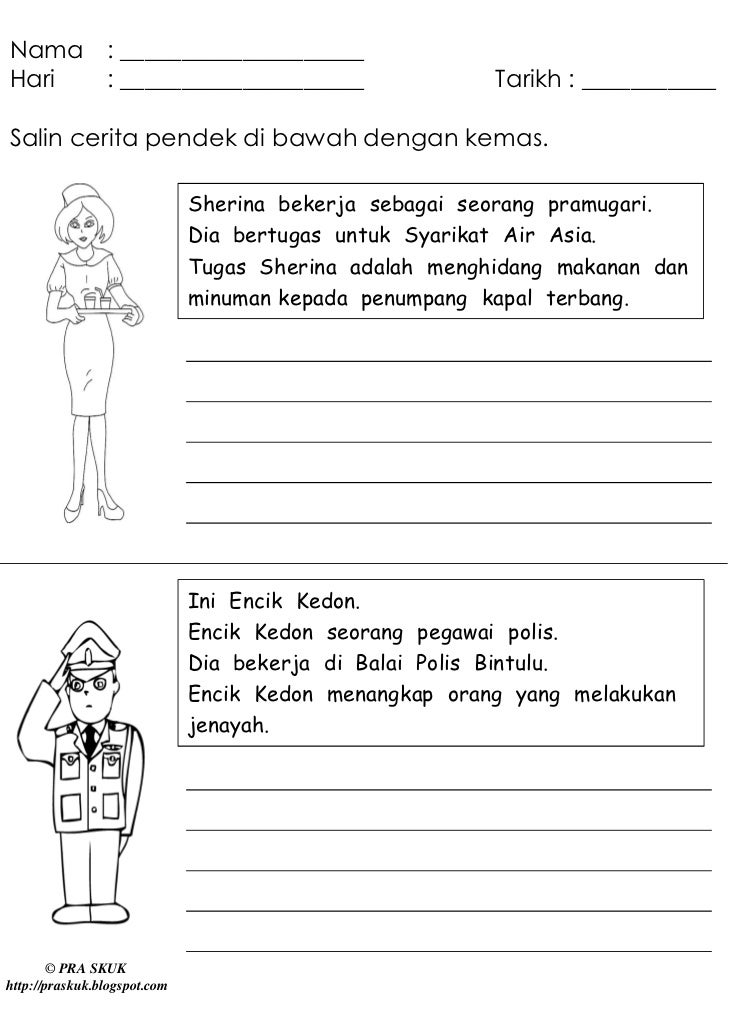 Nama : ____________________
Hari : ____________________ Tarikh : ___________
Salin cerita pendek di bawah dengan kemas.
Sherina bekerja sebagai seorang pramugari.
Dia bertugas untuk Syarikat Air Asia.
Tugas Sherina adalah menghidang makanan dan
minuman kepada penumpang kapal terbang.
Ini Encik Kedon.
Encik Kedon seorang pegawai polis.
Dia bekerja di Balai Polis Bintulu.
Encik Kedon menangkap orang yang melakukan
jenayah.
© PRA SKUK
http://praskuk.blogspot.com